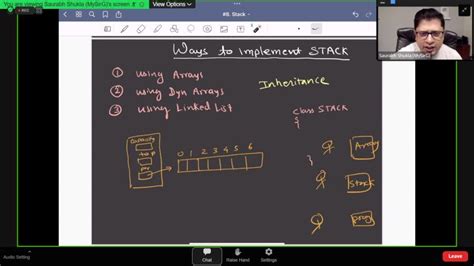 You are viewing Saurabh Shukla (MySirG)'s screen
View Options
#8. Stack
Saurabh Shukla (MySirG)
Ways to implement STACK
① using Arrays
② using Dyn Arrays
③ using Linked List
Inheritance
class STACK
{
}
capacity
top
ptr
0 1 2 3 4 5 6
Array
Stack
prog
Audio Setting
Chat
Raise Hand
Settings
Leave